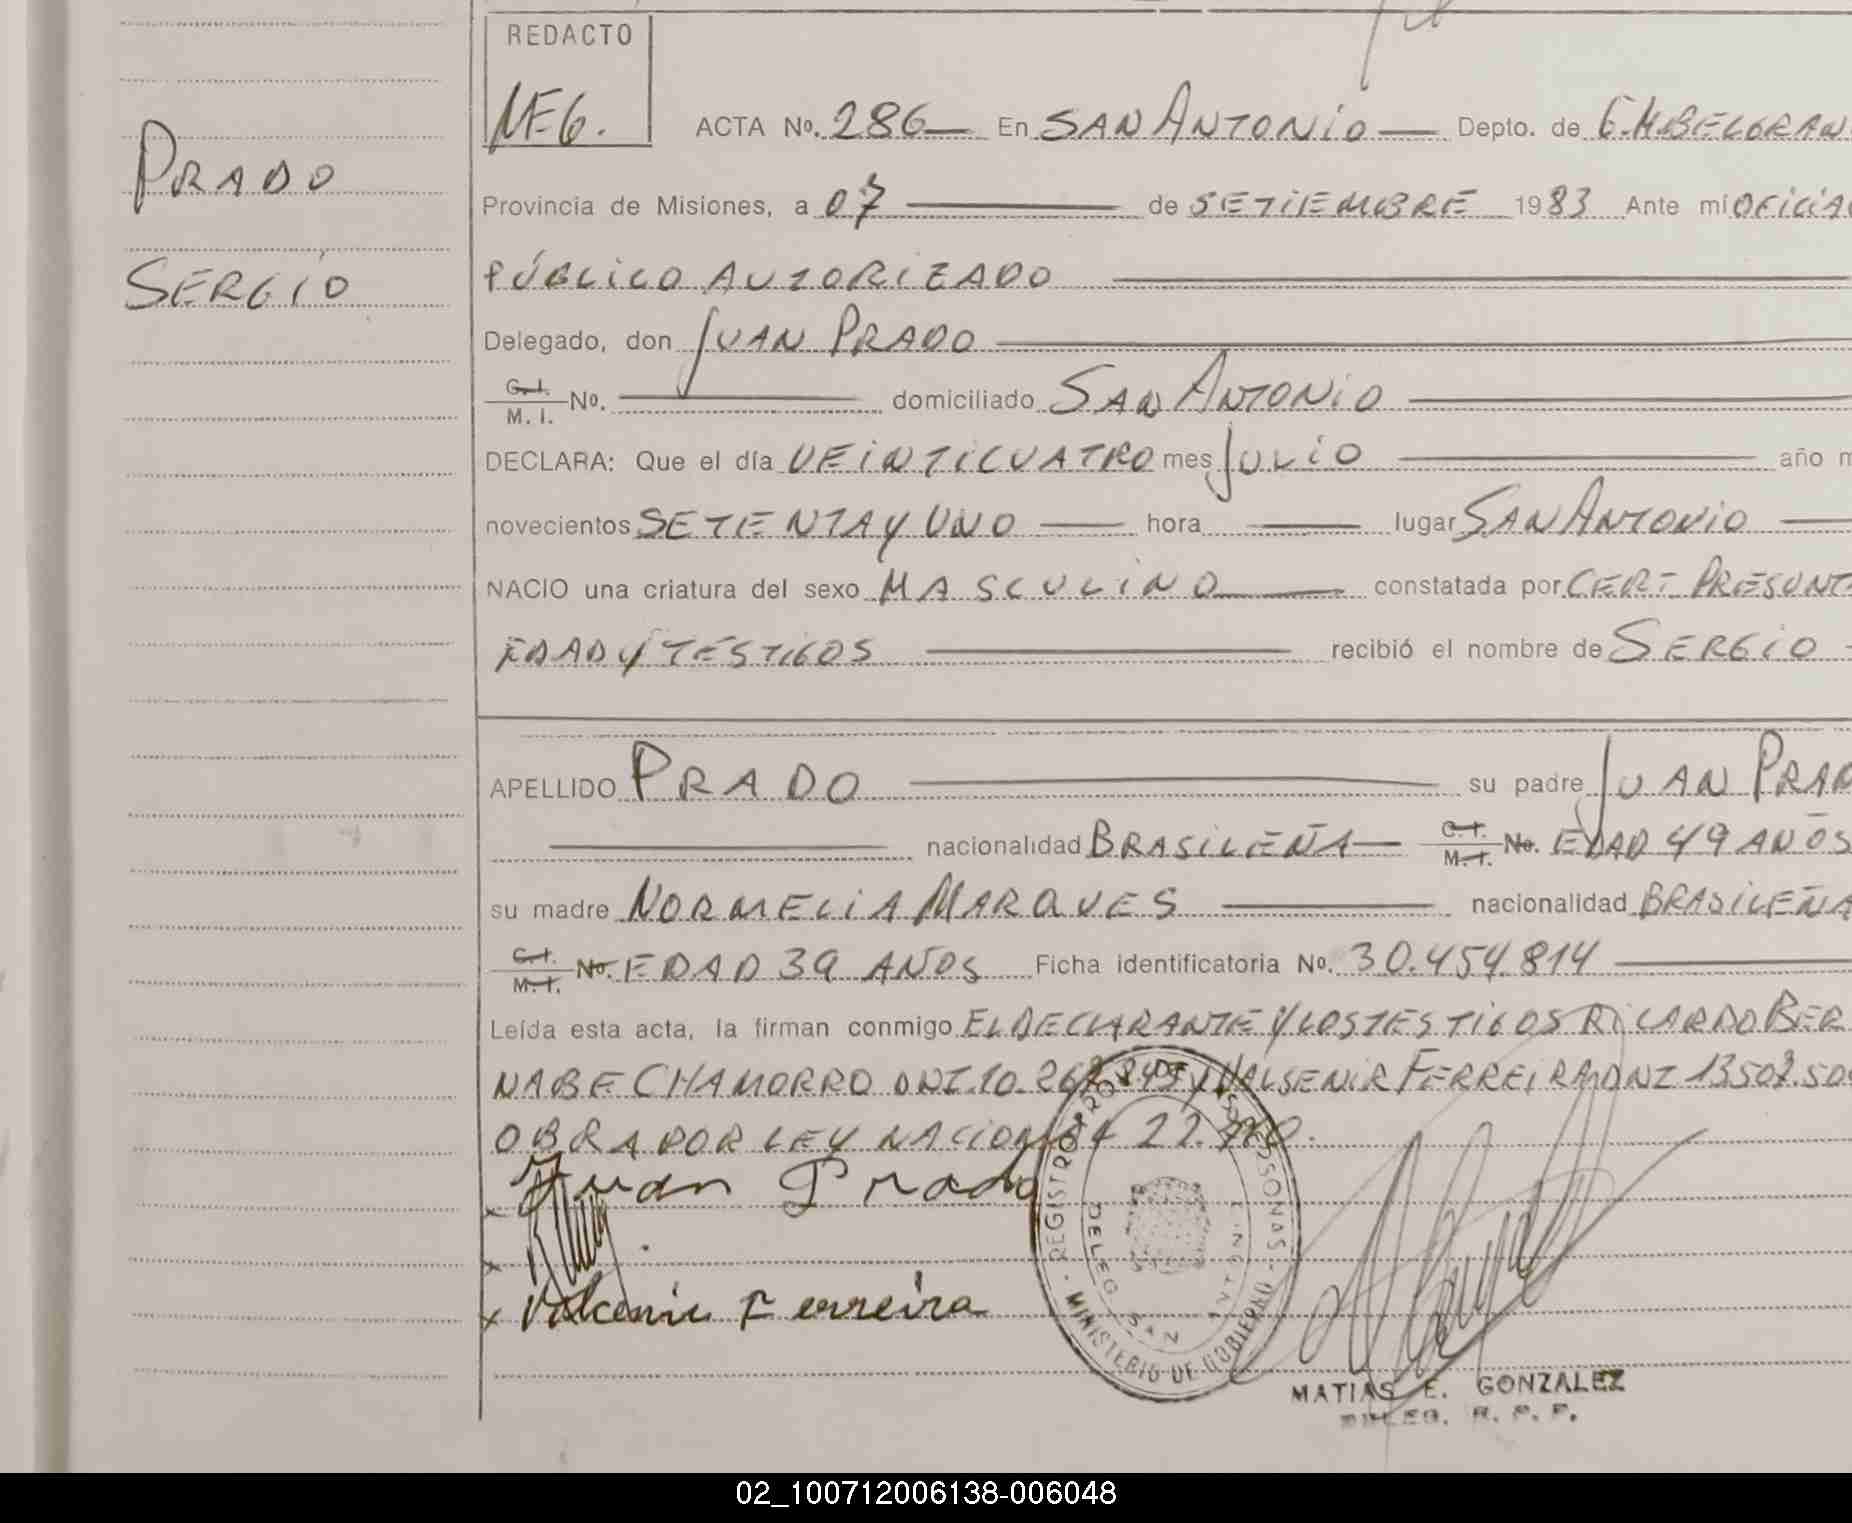 REDACTO
MEG.
PRADO
SERGIO
ACTA Nº. 286 En SAN ANTONIO Depto. de G.M.BELGRAN
Provincia de Misiones, a 07 de SETIEMBRE 1983 Ante mí OFICIA
PÚBLICO AUTORIZADO
Delegado, don JUAN PRADO
C.I. M.I. Nº. domiciliado SAN ANTONIO
DECLARA: Que el día VEINTICUATRO mes JULIO año m
novecientos SETENTA Y UNO hora lugar SAN ANTONIO
NACIO una criatura del sexo MASCULINO constatada por CERT PRESUNT
EDAD Y TESTIGOS recibió el nombre de SERGIO
APELLIDO PRADO su padre JUAN PRAD
nacionalidad BRASILEÑA C.I. M.I. No. EDAD 49 AÑOS
su madre NORMELIA MARQUES nacionalidad BRASILEÑA
C.I. M.I. No. EDAD 39 AÑOS Ficha identificatoria Nº. 30.454.814
Leída esta acta, la firman conmigo EL DECLARANTE Y LOS TESTIGOS RICARDO BER
NABE CHAMORRO DNI.10. Y VALSENIR FERREIRA DNI 13507.50
OBRADOR LEY NACIONAL 22.
Juan Prado
Ferreira
REGISTRO PROV. DE LAS PERSONAS
MINISTERIO DE GOBIERNO
DELEG. SAN ANTONIO
MATIAS E. GONZALEZ
R. P. P.
02_100712006138-006048